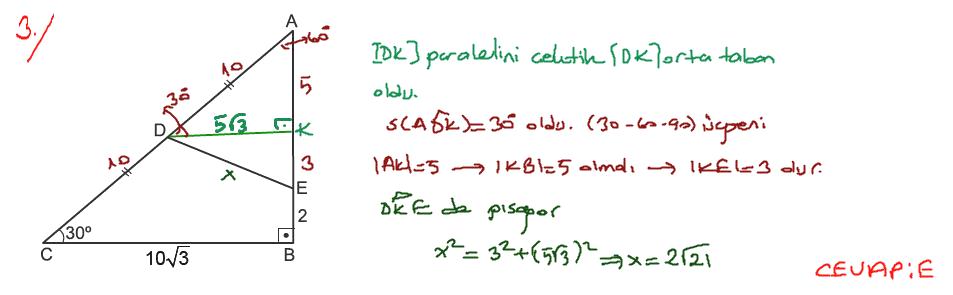 3./
A
60°
10
5
30°
D
5√3
K
10
3
x
E
2
30°
C
10√3
B
[DK] paralelini çektik [DK] orta taban
oldu.
s(ADK)=30° oldu. (30-60-90) üçgeni
|AK|=5 → |KB|=5 olmalı → |KE|=3 dur.
DKE de pisagor
x² = 3² + (5√3)² ⇒ x = 2√21
CEVAP: E